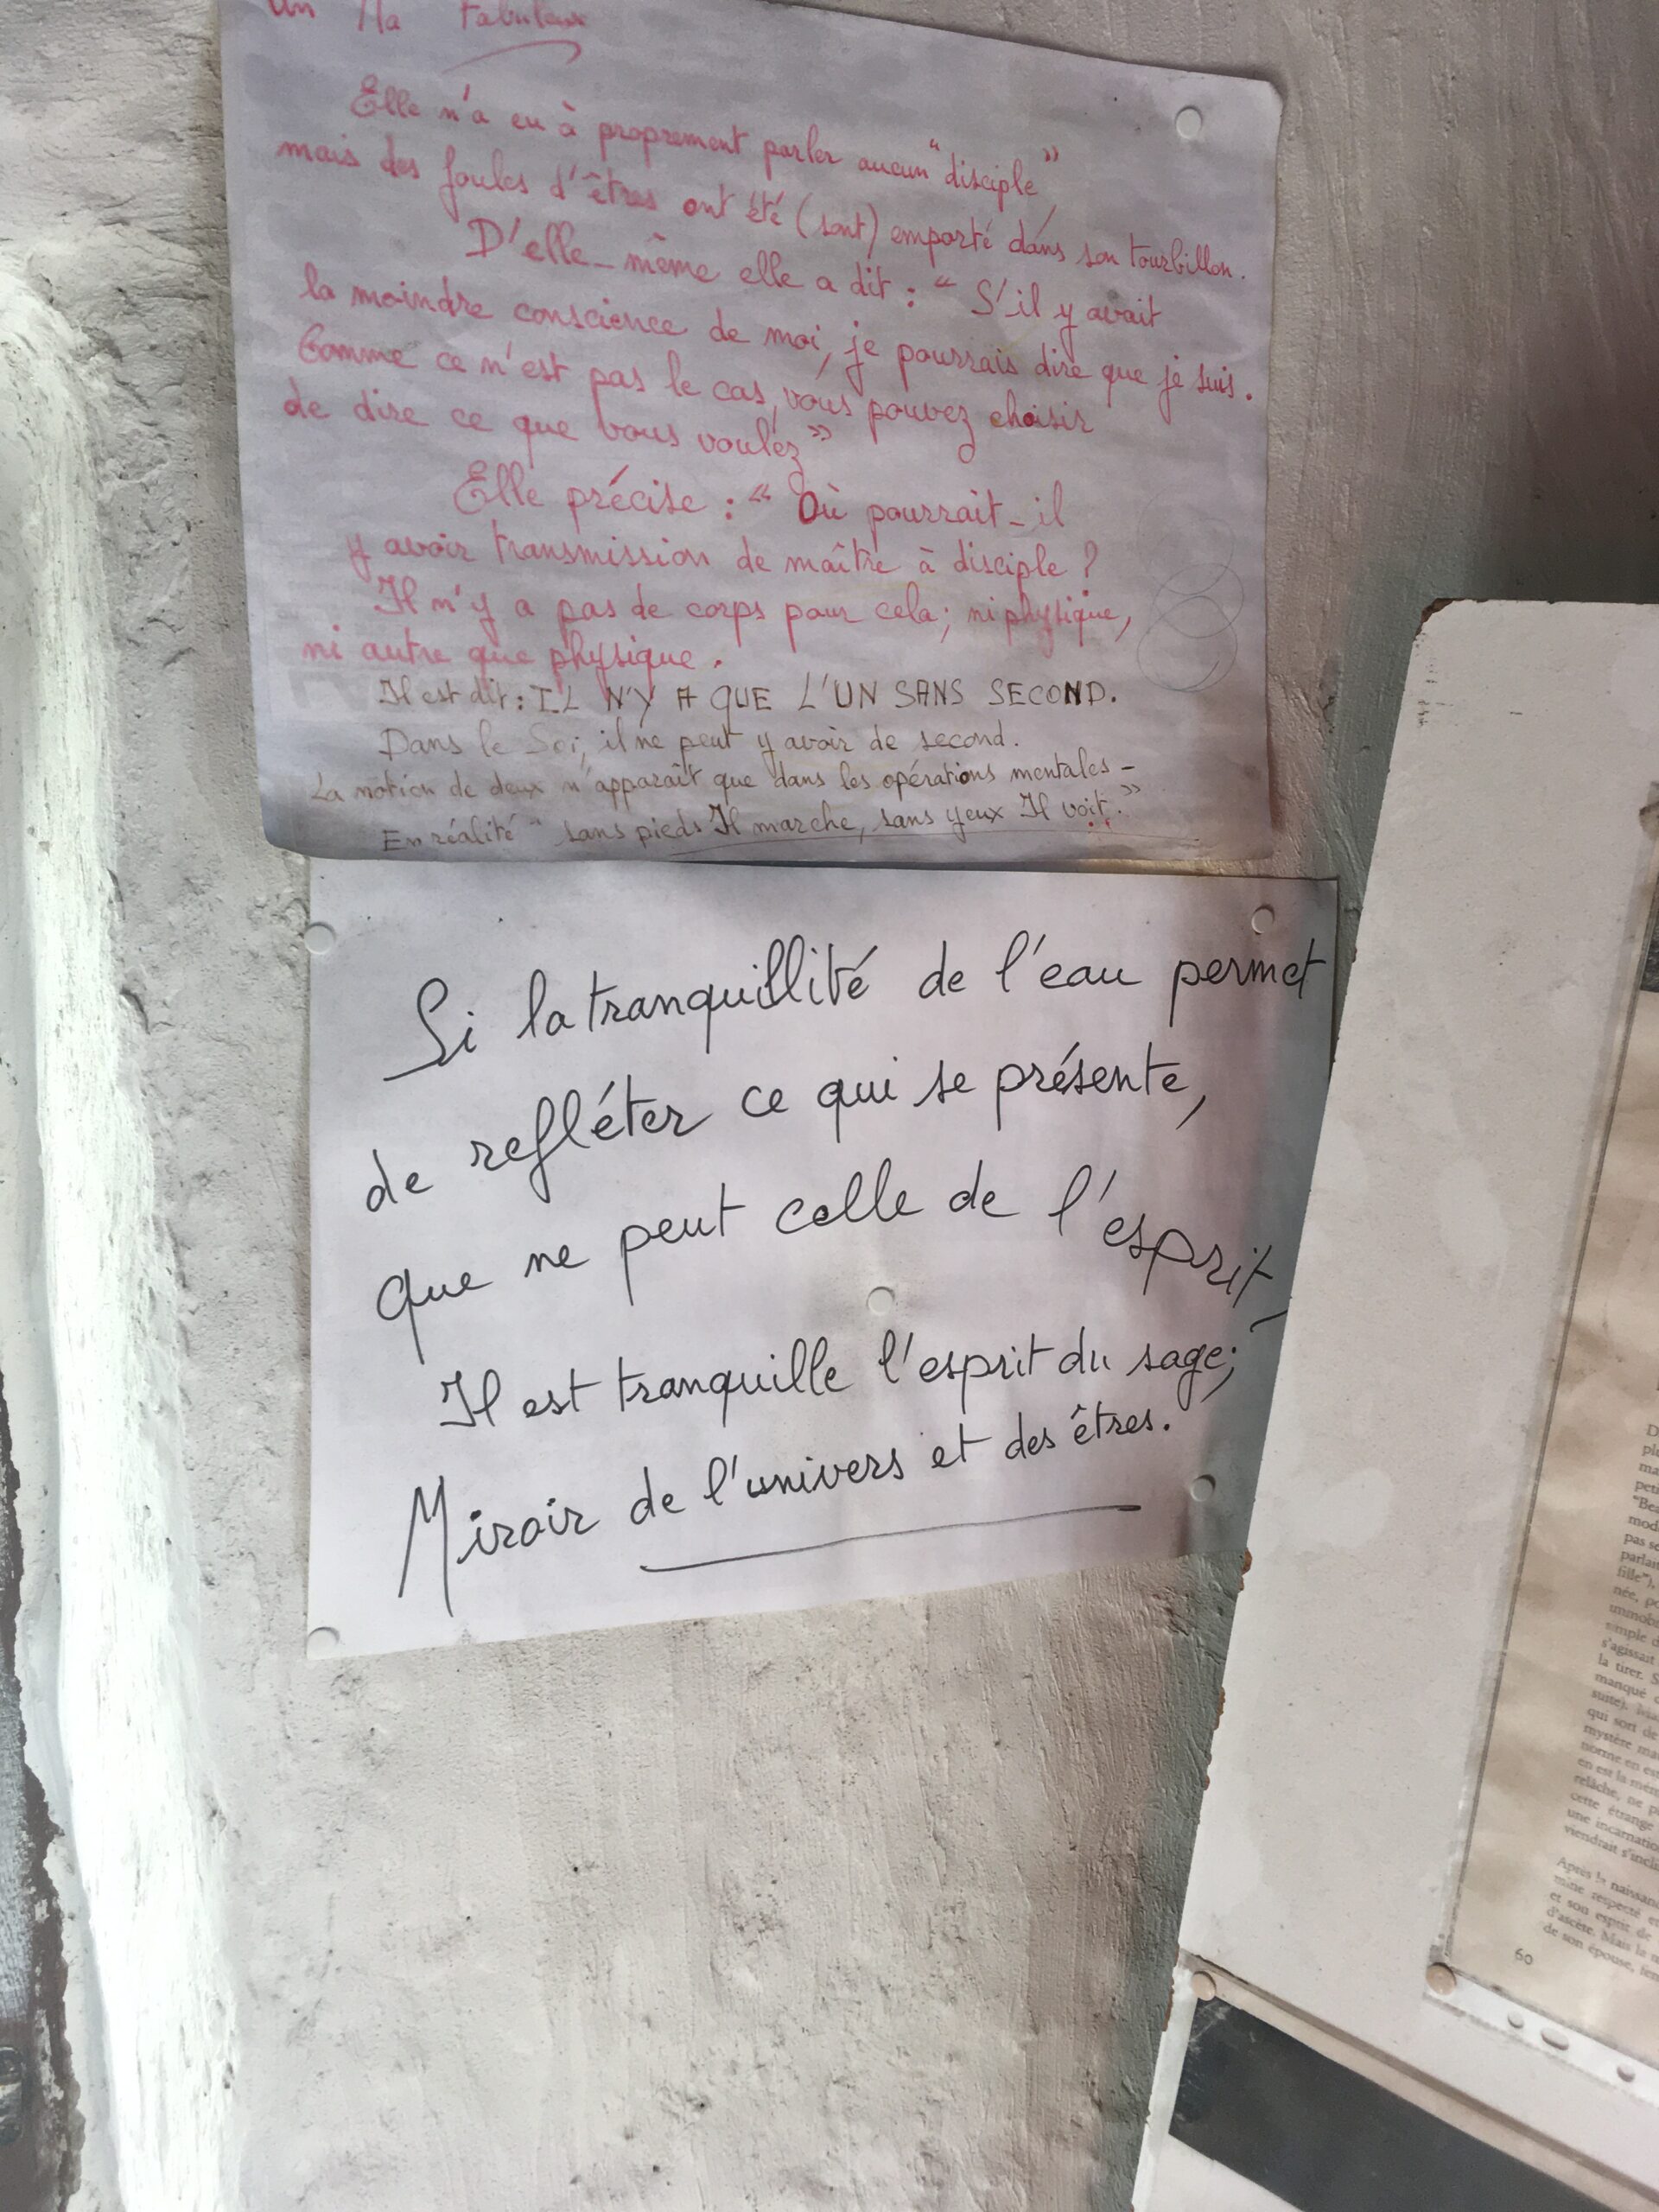 un Ma Fabuleux
Elle n'a eu à proprement parler aucun "disciple",
mais des foules d'êtres ont été (sont) emporté dans son tourbillon.
D'elle-même elle a dit : " S'il y avait
la moindre conscience de moi, je pourrais dire que je suis.
Comme ce n'est pas le cas, vous pouvez choisir
de dire ce que vous voulez "
Elle précise : " Où pourrait-il
y avoir transmission de maître à disciple ?
Il n'y a pas de corps pour cela ; ni physique,
ni autre que physique.
Il est dit : IL N'Y A QUE L'UN SANS SECOND.
Dans le Soi, il ne peut y avoir de second.
La notion de deux n'apparaît que dans les opérations mentales -
En réalité " sans pieds Il marche, sans yeux Il voit. "
Si la tranquillité de l'eau permet
de refléter ce qui se présente,
que ne peut celle de l'esprit,
Il est tranquille l'esprit du sage ;
Miroir de l'univers et des êtres.
"Bea
pas se
parlait
fille"),
née, po
immobi
simple d
s'agissait
la tirer. S
manqué
suite).
qui sort de
mystère ma
norme en es
en est la
relâche, ne p
cette étrange
une incarnatio
viendrait s'incl
Après naissan
respecté et
et son esprit de
d'ascète. Mais le
de son épouse,
60